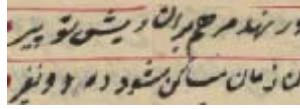 در نهند مرهم بران ریش تو پیر
آن زمان ساکن شود درد و نفیر